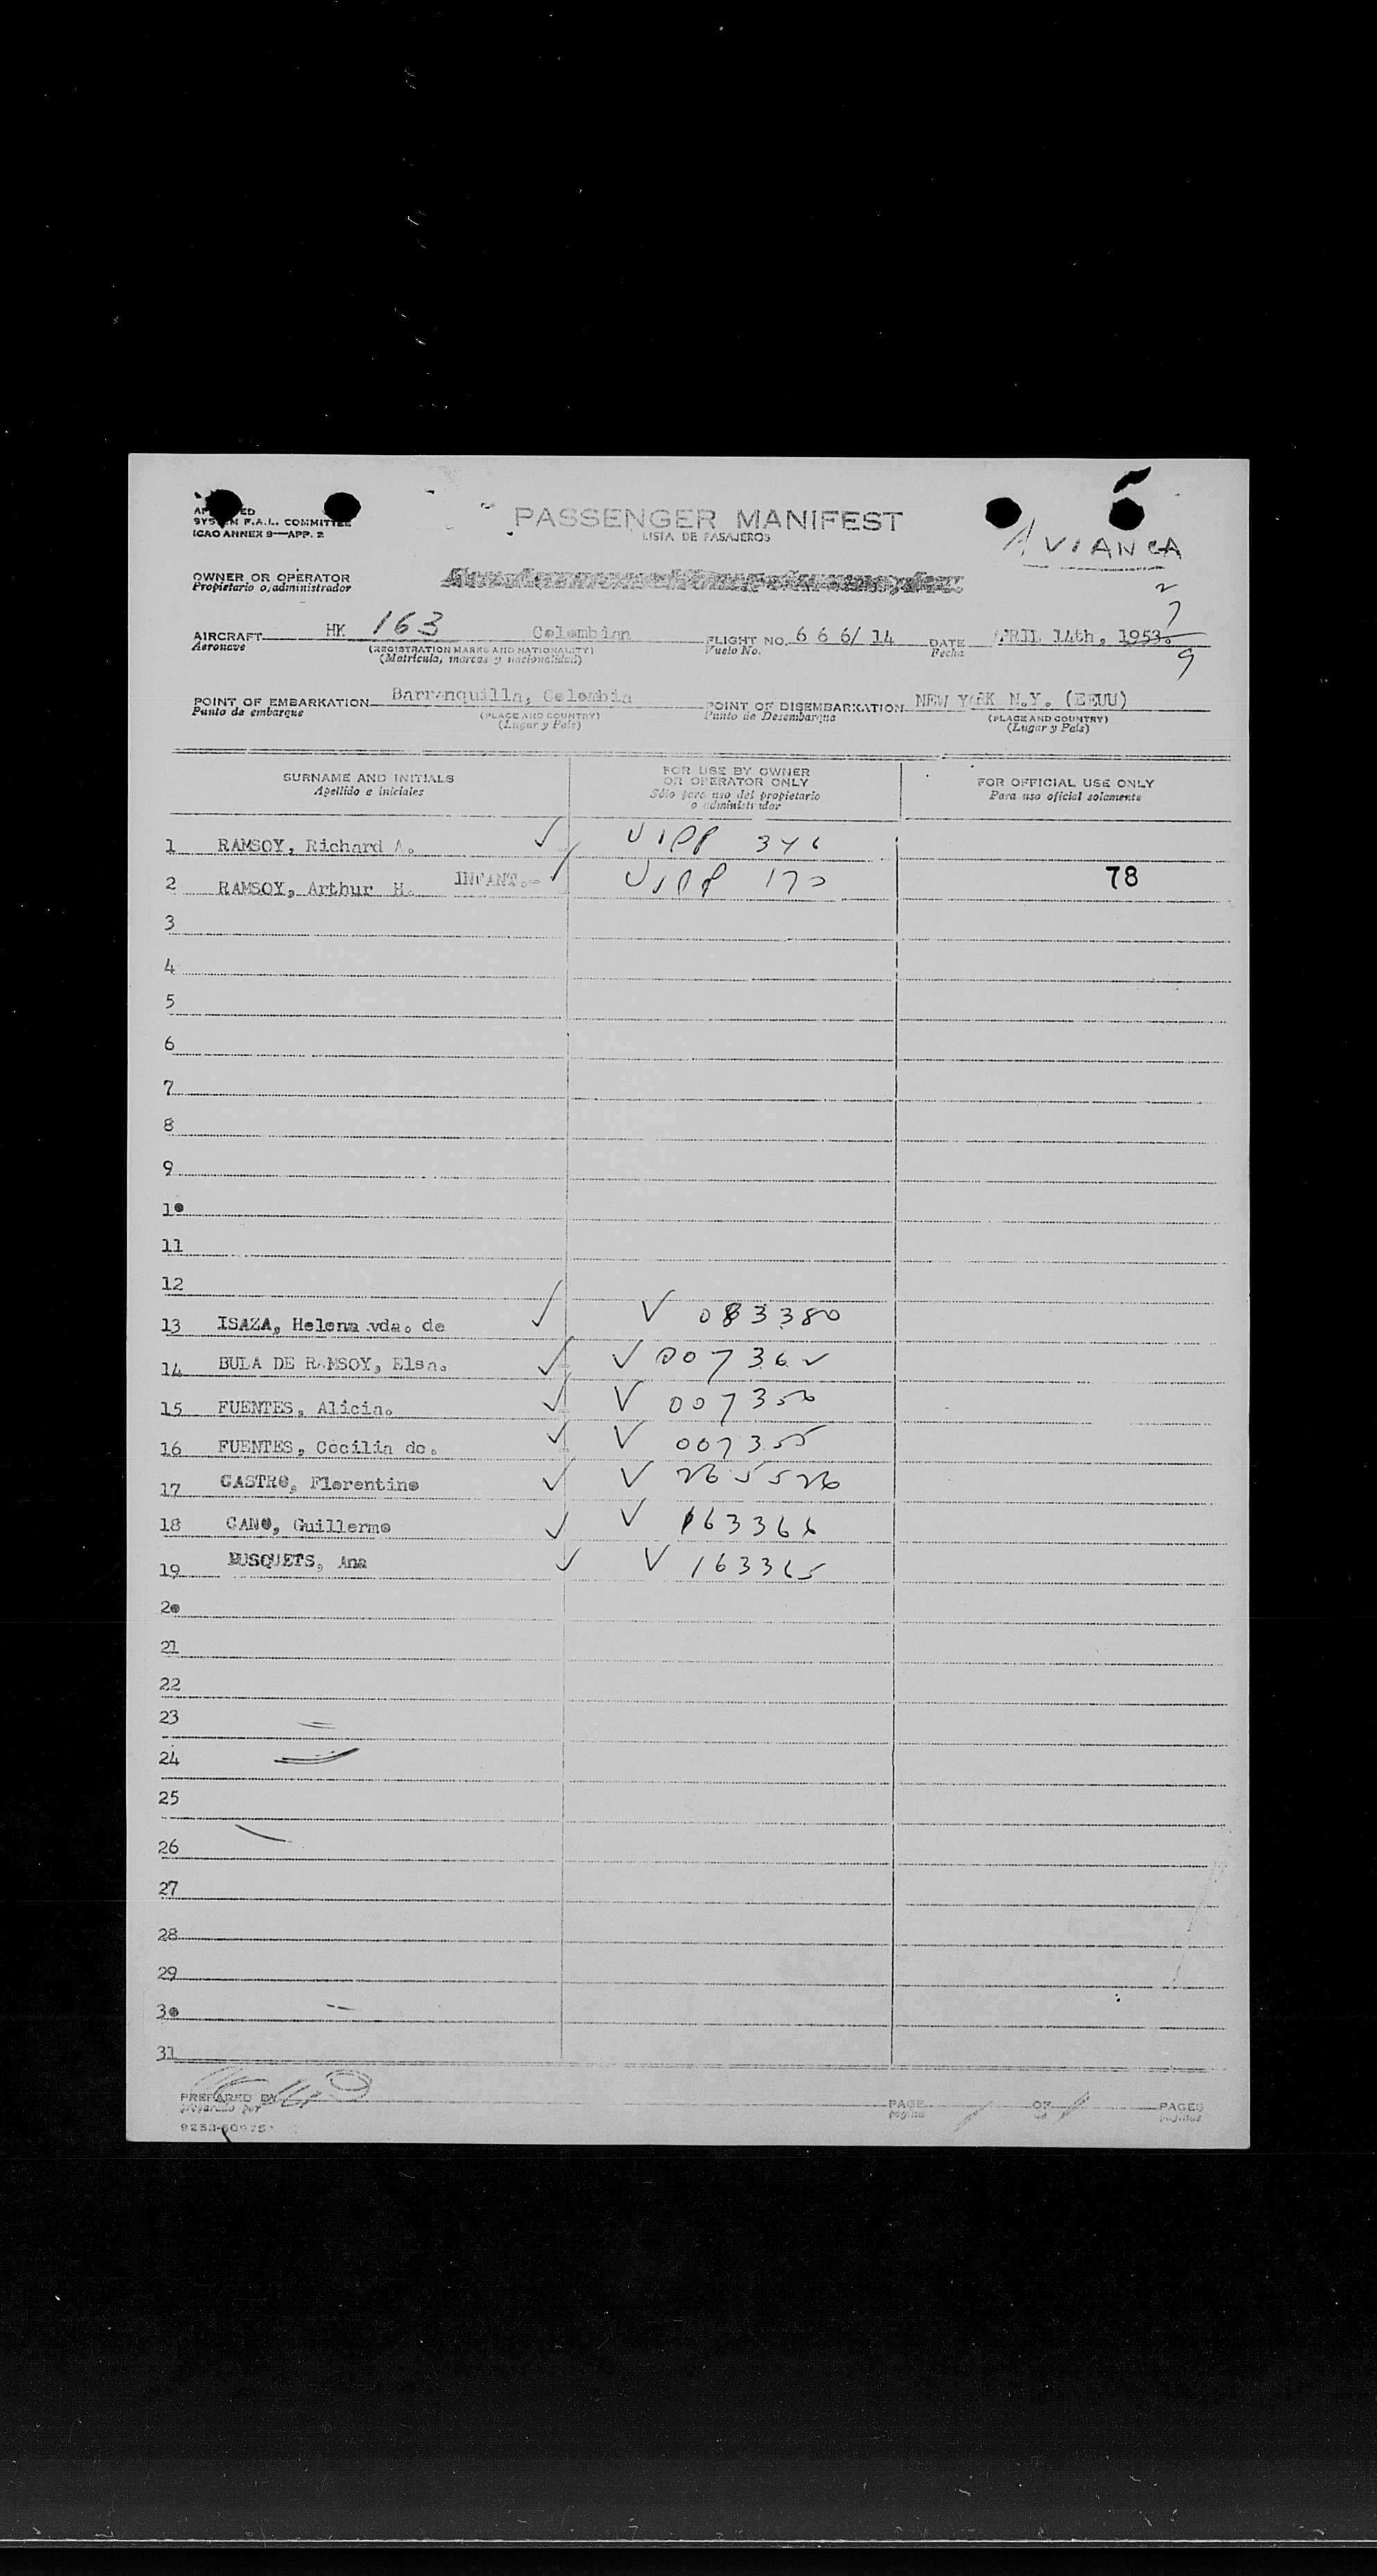 SYSTEM F.A.L. COMMITTEE
ICAO ANNEX 9—APP. 2
PASSENGER MANIFEST
LISTA DE PASAJEROS
AVIANCA
OWNER OR OPERATOR
Propietario o administrador
2
7
9
AIRCRAFT HK 163 Colombian FLIGHT NO. 6 6 6/ 14 DATE APRIL 14th, 1953.
Aeronave (REGISTRATION MARKS AND NATIONALITY) Vuelo No. Fecha
(Matrícula, marcas y nacionalidad)
POINT OF EMBARKATION Barranquilla, Colombia POINT OF DISEMBARKATION NEW YORK N.Y. (EEUU)
Punto de embarque (PLACE AND COUNTRY) Punto de Desembarque (PLACE AND COUNTRY)
(Lugar y País) (Lugar y País)
SURNAME AND INITIALS
Apellido e iniciales
FOR USE BY OWNER
OR OPERATOR ONLY
Sólo para uso del propietario
o administrador
FOR OFFICIAL USE ONLY
Para uso oficial solamente
1 RAMSOY, Richard A. ✓
2 RAMSOY, Arthur H. INFANT.- ✓ 78
3
4
5
6
7
8
9
10
11
12
13 ISAZA, Helena vda. de ✓ V 083380
14 BULA DE RAMSOY, Elsa. ✓ V
15 FUENTES, Alicia. ✓ V
16 FUENTES, Cecilia de. ✓ V 007355
17 CASTRO, Florentino ✓ V 265526
18 CANO, Guillermo ✓ V 163366
19 BUSQUETS, Ana ✓ V 163365
20
21
22
23
24
25
26
27
28
29
30
31
PREPARED BY PAGE 1 OF 1 PAGES
preparado por página de páginas